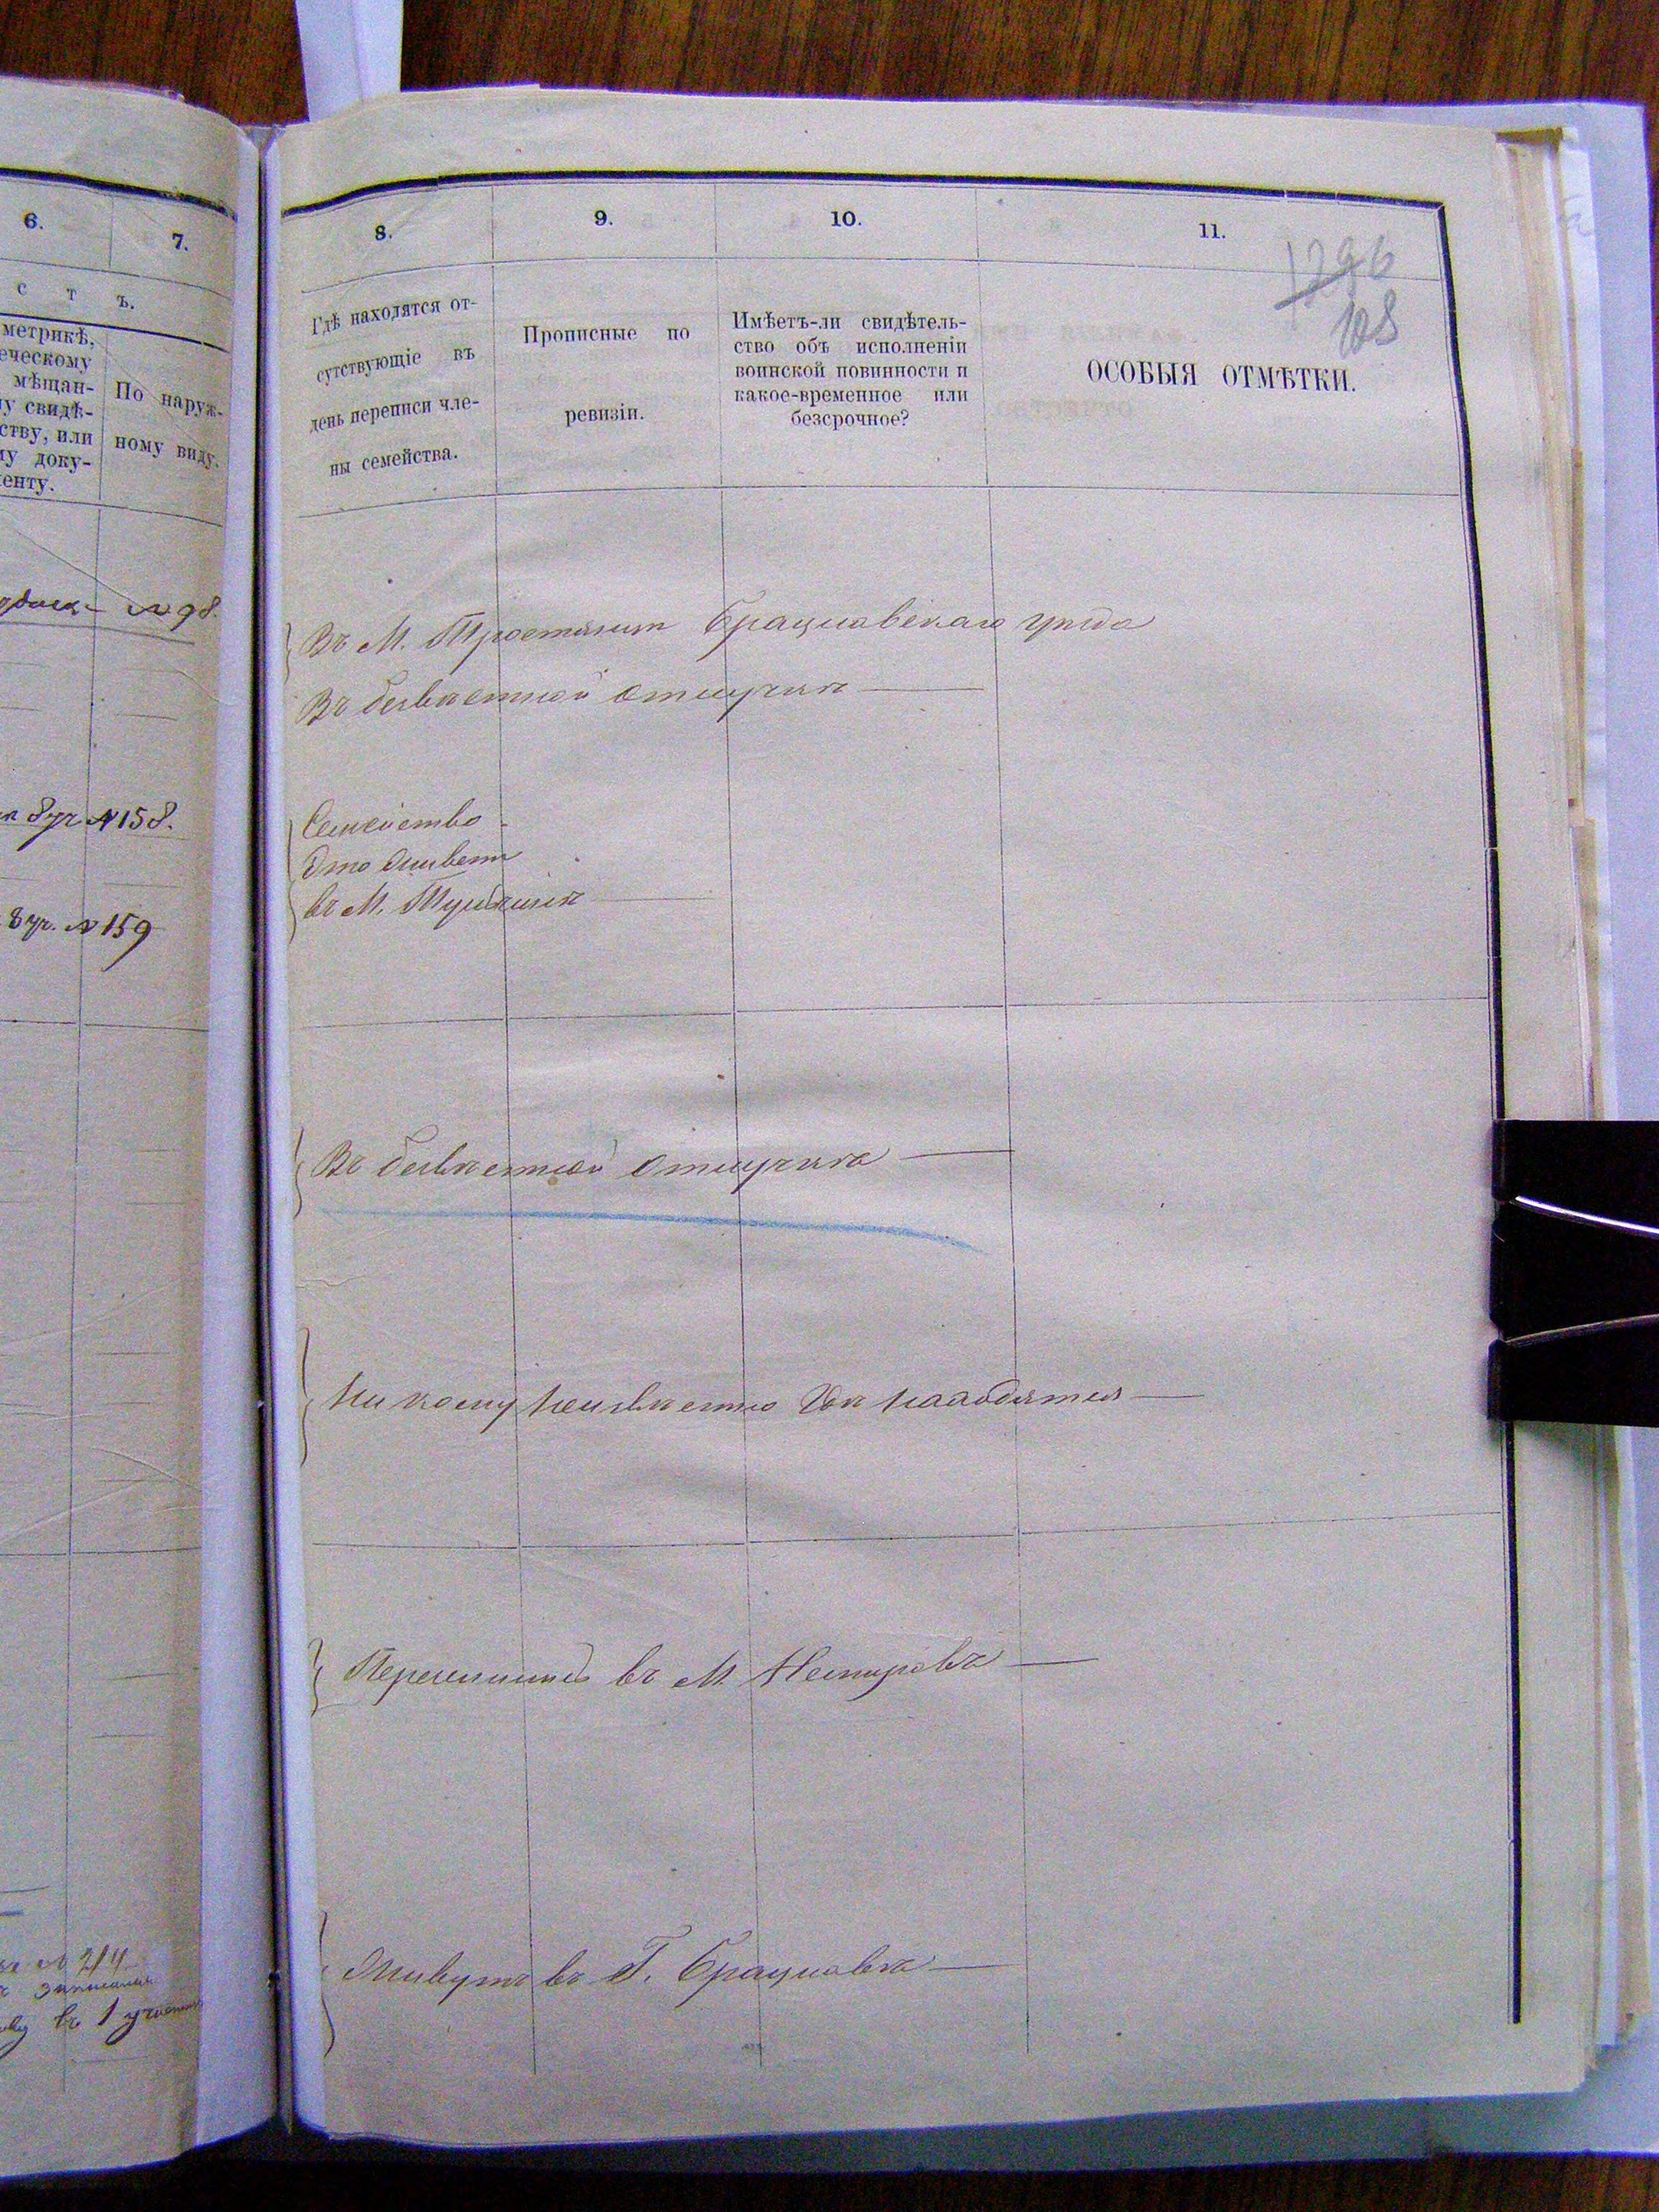 6.
7.
с т ъ.
метрикѣ,
еческому
мѣщан-
у свидѣ-
ству, или
у доку-
енту.
По наруж-
ному виду.
№ 98.
8 уч № 158.
8 уч. № 159
№ 214
въ 1
8.
9.
10.
11.
1296
108
Гдѣ находятся от-
сутствующіе въ
день переписи чле-
ны семейства.
Прописные по
ревизіи.
Имѣетъ-ли свидѣтель-
ство объ исполненіи
воинской повинности и
какое-временное или
безсрочное?
ОСОБЫЯ ОТМѢТКИ.
Въ М. Тростянит Брацлавскаго уѣзда
Въ безвѣстной отлучкѣ
Семейство
Это живетъ
въ М. Тульчинѣ
Въ безвѣстной отлучкѣ
Ни кому неизвѣстно гдѣ находятся
въ М. Немировъ
Живутъ въ Г. Брацлавѣ